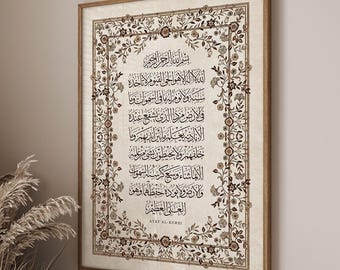 بسم الله الرحمن الرحيم
الله لا إله إلا هو الحي القيوم لا تأخذه
سنة ولا نوم له ما في السموات وما
في الأرض من ذا الذي يشفع عنده
إلا بإذنه يعلم ما بين أيديهم وما
خلفهم ولا يحيطون بشيء من علمه
إلا بما شاء وسع كرسيه السموات
والأرض ولا يؤده حفظهما وهو
العلي العظيم
AYAT AL-KURSI